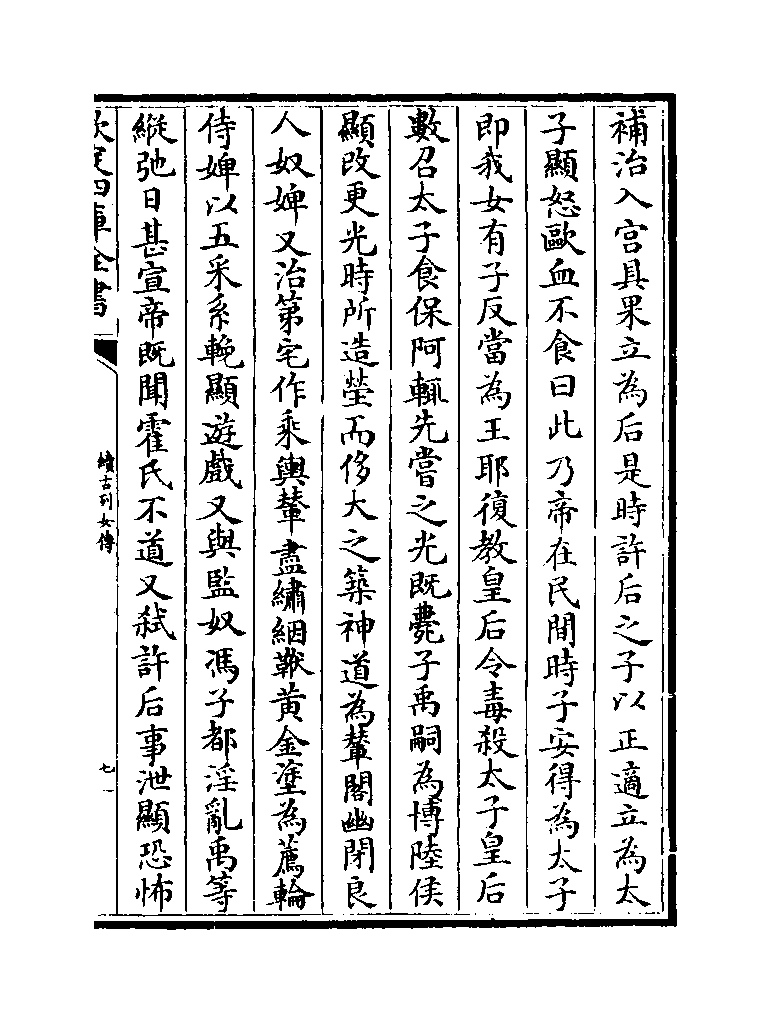 補治入宫具果立為后是時許后之子以正適立為太
子顯怒歐血不食曰此乃帝在民間時子安得為太子
即我女有子反當為王耶復教皇后令毒殺太子皇后
數召太子食保阿輒先嘗之光既薨子禹嗣為博陸侯
顯改更光時所造塋而侈大之築神道為輦閣幽閉良
人奴婢又治第宅作乘輿輦盡繡絪靴黄金塗為薦輪
侍婢以五采糸輓顯遊戲又與監奴馮子都淫亂禹等
縱弛日甚宣帝既聞霍氏不道又弑許后事泄顯恐怖
欽定四庫全書
續古列女傳
七